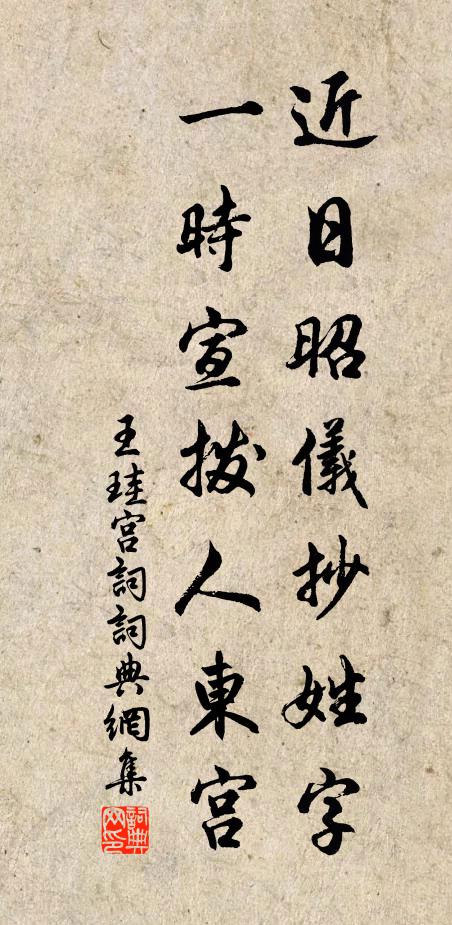 近日昭儀抄姓字
一時宣拨人東宫
王珪宫詞詞典網集
詞典網印